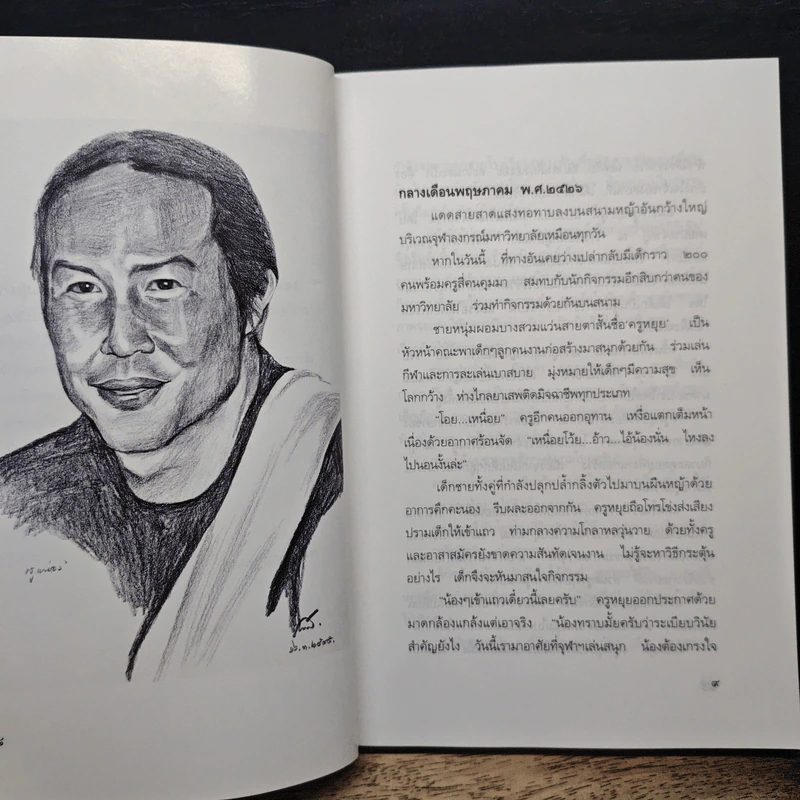 กลางเดือนพฤษภาคม พ.ศ.๒๕๒๖
แดดสายสาดแสงทอทาบลงบนสนามหญ้าอันกว้างใหญ่
บริเวณจุฬาลงกรณ์มหาวิทยาลัยเหมือนทุกวัน
หากในวันนี้ ที่ทางอันเคยว่างเปล่ากลับมีเด็กราว ๒๐๐
คนพร้อมครูสี่คนคุมมา สมทบกับนักกิจกรรมอีกสิบกว่าคนของ
มหาวิทยาลัย ร่วมทำกิจกรรมด้วยกันบนสนาม
ชายหนุ่มผอมบางสวมแว่นสายตาสั้นชื่อ‘ครูหยุย’ เป็น
หัวหน้าคณะพาเด็กๆลูกคนงานก่อสร้างมาสนุกด้วยกัน ร่วมเล่น
กีฬาและการละเล่นเบาสบาย มุ่งหมายให้เด็กๆมีความสุข เห็น
โลกกว้าง ห่างไกลยาเสพติดมิจฉาชีพทุกประเภท
“โอย...เหนื่อย” ครูอีกคนออกอุทาน เหงื่อแตกเต็มหน้า
เนื่องด้วยอากาศร้อนจัด “เหนื่อยโว้ย...อ้าว...ไอ้น้องนั่น ไหงลง
ไปนอนงั้นล่ะ”
เด็กชายทั้งคู่ที่กำลังปลุกปล้ำกลิ้งตัวไปมาบนผืนหญ้าด้วย
อาการคึกคะนอง รีบผละออกจากกัน ครูหยุยถือโทรโข่งส่งเสียง
ปรามเด็กให้เข้าแถว ท่ามกลางความโกลาหลวุ่นวาย ด้วยทั้งครู
และอาสาสมัครยังขาดความสันทัดเจนงาน ไม่รู้จะหาวิธีกระตุ้น
อย่างไร เด็กจึงจะหันมาสนใจกิจกรรม
“น้องๆเข้าแถวเดี๋ยวนี้เลยครับ” ครูหยุยออกประกาศด้วย
มาดกล้องแกล้งแต่เอาจริง “น้องทราบมั้ยครับว่าระเบียบวินัย
สำคัญยังไง วันนี้เรามาอาศัยที่จุฬาฯเล่นสนุก น้องต้องเกรงใจ
๙